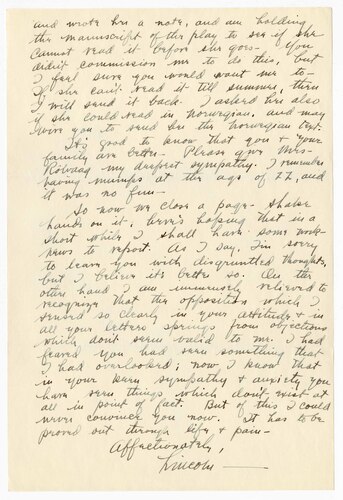 and wrote her a note, and am holding
the manuscript of the play to see if she
cannot read it before she goes. You
didn't commission me to do this, but
I feel sure you would want me to—
If she can't read it till summer, then
I will send it back. I asked her also
if she could read in Norwegian, and may
wire you to send her the Norwegian text.
It's good to know that you & your
family are better. Please give Mrs.
Rölvaag my deepest sympathy. I remember
having mumps at the age of 22, and
it was no fun—
So now we close a page— shake
hands on it. Here's hoping that in a
short while I shall have some work-
news to report. As I say, I'm sorry
to leave you with disgruntled thoughts,
but I believe it's better so. On the
other hand I am immensely relieved to
recognize that the opposition which I
sensed so clearly in your attitude & in
all your letters springs from objections
which don't seem valid to me. I had
feared you had seen something that
I had overlooked; now I know that
in your keen sympathy & anxiety you
have seen things which don't exist at
all in point of fact. But of this I could
never convince you now. It has to be
proved out through life & pain—
Affectionately,
Lincoln